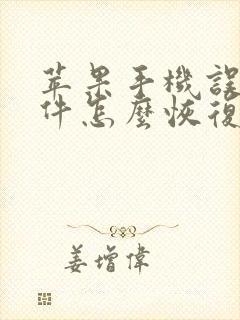 苹果手機誤
件怎麼恢復
姜增偉